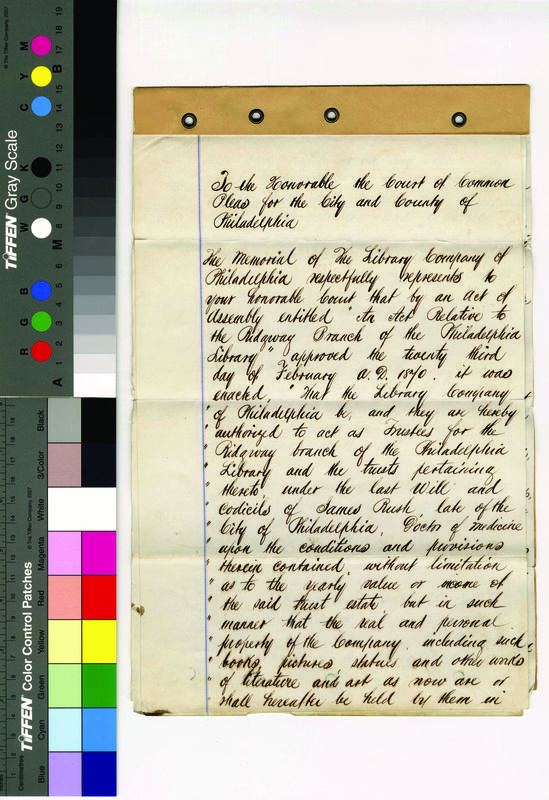 To the Honorable the Court of Common
Pleas for the City and County of
Philadelphia
The Memorial of The Library Company of
Philadelphia respectfully represents to
your honorable Court that by an act of
Assembly entitled "An Act Relative to
the Ridgway Branch of the Philadelphia
Library" approved the twenty third
day of February A.D. 1870. it was
enacted, "That the Library Company
" of Philadelphia be, and they are hereby
" authorized to act as Trustees for the
" Ridgway branch of the Philadelphia
" Library and the trusts pertaining
" thereto, under the last Will and
" Codicils of James Rush, late of the
" City of Philadelphia, Doctor of medicine
" upon the conditions and provisions
" therein contained, without limitation
" as to the yearly value or income of
" the said trust estate, but in such
" manner that the real and personal
" property of the Company, including such
" books, pictures, statues and other works
" of literature and art as now are or
" shall hereafter be held by them in
TIFFEN Gray Scale
© The Tiffen Company, 2007
R G B W G K C Y M
A 1 2 3 4 5 6 M 8 9 10 11 12 13 14 15 B 17 18 19
TIFFEN Color Control Patches
© The Tiffen Company, 2007
Centimetres
Blue Cyan Green Yellow Red Magenta White 3/Color Black